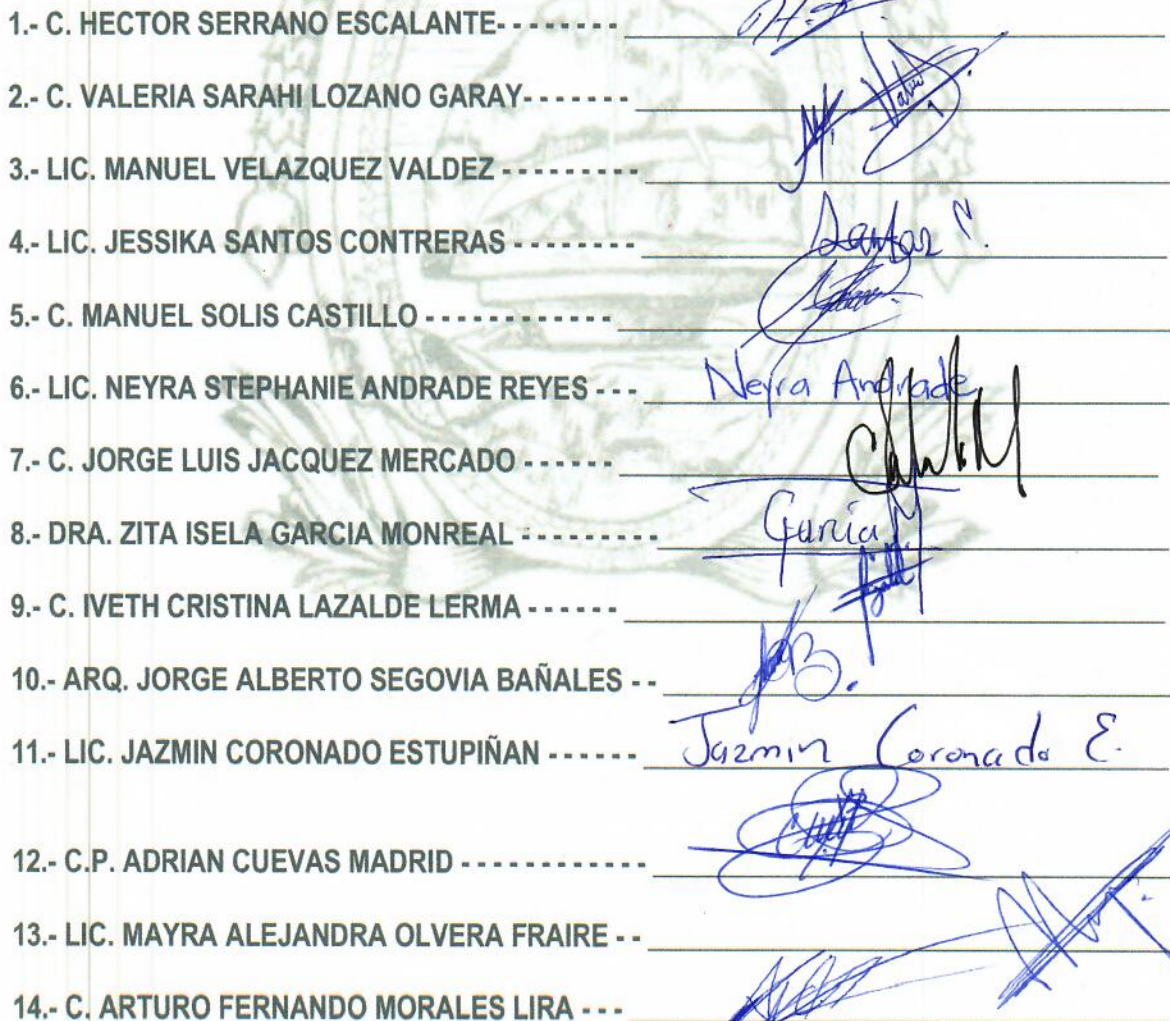 1.- C. HECTOR SERRANO ESCALANTE- - - - - - - -
2.- C. VALERIA SARAHI LOZANO GARAY- - - - - - -
3.- LIC. MANUEL VELAZQUEZ VALDEZ - - - - - - - - -
4.- LIC. JESSIKA SANTOS CONTRERAS - - - - - - - - Santos C.
5.- C. MANUEL SOLIS CASTILLO - - - - - - - - - - - -
6.- LIC. NEYRA STEPHANIE ANDRADE REYES - - - Neyra Andrade
7.- C. JORGE LUIS JACQUEZ MERCADO - - - - - -
8.- DRA. ZITA ISELA GARCIA MONREAL - - - - - - - - - García M
9.- C. IVETH CRISTINA LAZALDE LERMA - - - - - -
10.- ARQ. JORGE ALBERTO SEGOVIA BAÑALES - -
11.- LIC. JAZMIN CORONADO ESTUPIÑAN - - - - - - Jazmin Coronado E.
12.- C.P. ADRIAN CUEVAS MADRID - - - - - - - - - - - -
13.- LIC. MAYRA ALEJANDRA OLVERA FRAIRE - -
14.- C. ARTURO FERNANDO MORALES LIRA - - -